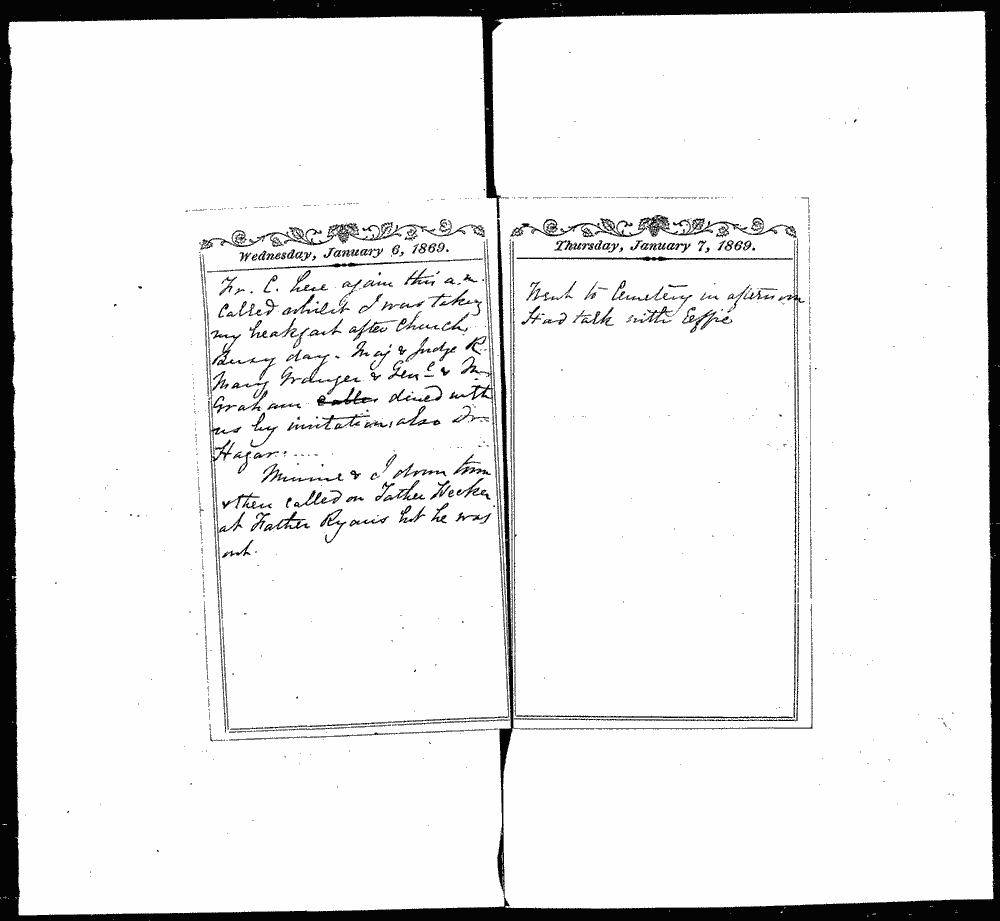 Wednesday, January 6, 1869.
Fr. C. here again this a.m.
called whilst I was taking
my breakfast after church.
Busy day. Maj & Judge R
Mary Granger & Genl &
Graham dined with
us by invitation, also Dr.
Hagar.
Minnie & I down town
& then called on Father Hecker
at Father Ryan's but he was
out.
Thursday, January 7, 1869.
Went to Cemetery in afternoon
Had talk with Effie